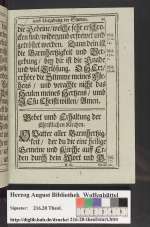 und Vergebung der Sünden.
die Gebeine/ welche sehr erschro-
cken sind/ wiederum erfreuet und
getröstet werden. Dann dein ist
die Barmhertzigkeit und Ver-
gebung/ bey dir ist die Gnade
und viel Erlösung. O HErr/
erhöre die Stimme meines
Flehens/ und verachte nicht das
Heulen meines Hertzens/ umb
JEsu Christi willen/ Amen.
Gebet umb Erhaltung der
Christlichen Kirchen.
O Vatter aller Barmhertzig-
keit/ der du dir eine heilige
Gemein und Kirche auff Er-
den durch dein Wort und
Herzog August Bibliothek Wolfenbüttel
Signatur: 216.20 Theol.
http://diglib.hab.de/drucke/216-20-theol/start.htm